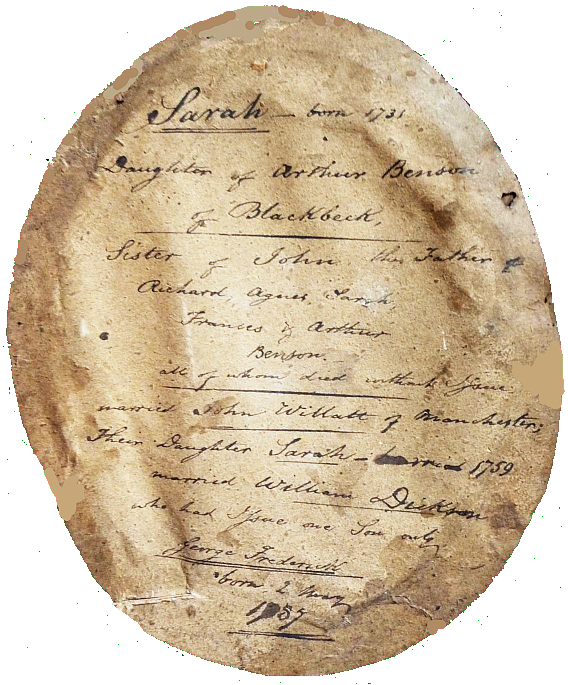 Sarah — born 1731
Daughter of Arthur Benson
of Blackbeck,
Sister of John the Father of
Richard, Agnes, Sarah
Frances & Arthur
Benson.
all of whom died without Issue
married John Willatt of Manchester;
Their Daughter Sarah — 1759
married William Dickson
who had Issue one Son only
George Frederick
born 2 May